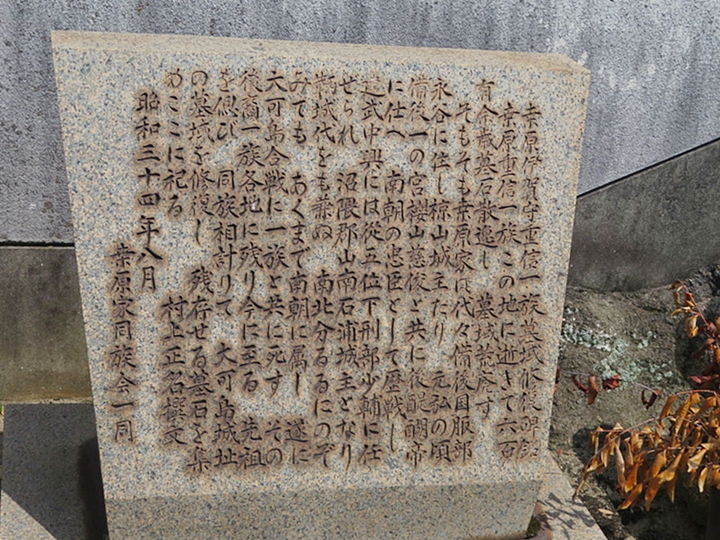 桒原伊賀守重信一族墓域修復碑銘
桒原重信一族この地に逝きて六百
有余歳墓石散逸し 墓域荒廃す
そもそも桒原家は代々備後国服部
永谷に住し椋山城主たり 元弘の頃
備後一の宮櫻山慈俊と共に後醍醐帝
に仕へ 南朝の忠臣として歴戦し
建武中興には従五位下刑部少輔に任
せられ 沼隈郡山南石浦城主となり
鞆城代をも兼ぬ 南北分るるにのぞ
みても あくまで南朝に属し 遂に
大可島合戦に一族と共に死す その
後裔一族各地に残り今に至る 先祖
を偲び 同族相計りて 大可島城址
の墓域を修復し 残存せる墓石を集
めここに祀る 村上正名撰文
昭和三十四年八月
桒原家同族会一同